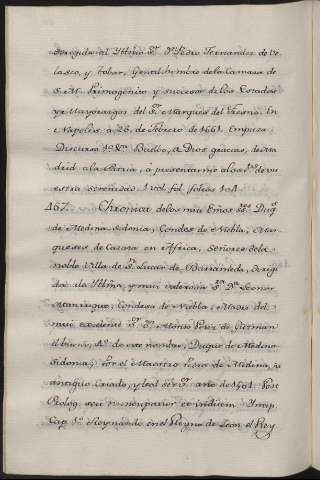 dirigida al Yttmo Sr. Dn. Pedro Fernandez de Ve
lasco, y Tobar, Gentil hombre de la Camara de
S. M. Primogenito y succesor de los Estados
y Mayorazgos del Sr. Marques del Fresno. En
Napoles a 26, de Febrero de 1661. Empieza:
Discurso 1º Buelbo, a Dios gracias, de Ma
drid a la Patria, a presentarme a los Ps. de vu
estra serenidad. 1 vol. fol. folios 101
467. Chronica de los mui Exmos Sres. Duqs.
de Medina sidonia, Condes de Niebla, Mar
queses de Cazaza en Africa, Señores de la
noble Villa de Sn. Lucar de Barrameda, dirigi
da a la Yltma. y mui valerosa Sra. Da. Leonor
Manrrique, Condesa de Niebla, Madre del
mui excelente Sr. Dn. Alonso Perez de Guzman
el bueno, 4º de este nombre, Duque de Medina
Sidonia; Por el Maestro Pedro de Medina, su
antiguo Criado, y leal serr. año de 1561. Post
Prolog. seu nuncupatior
Cap. 1º Reynando en el Reyno de Leon el Rey